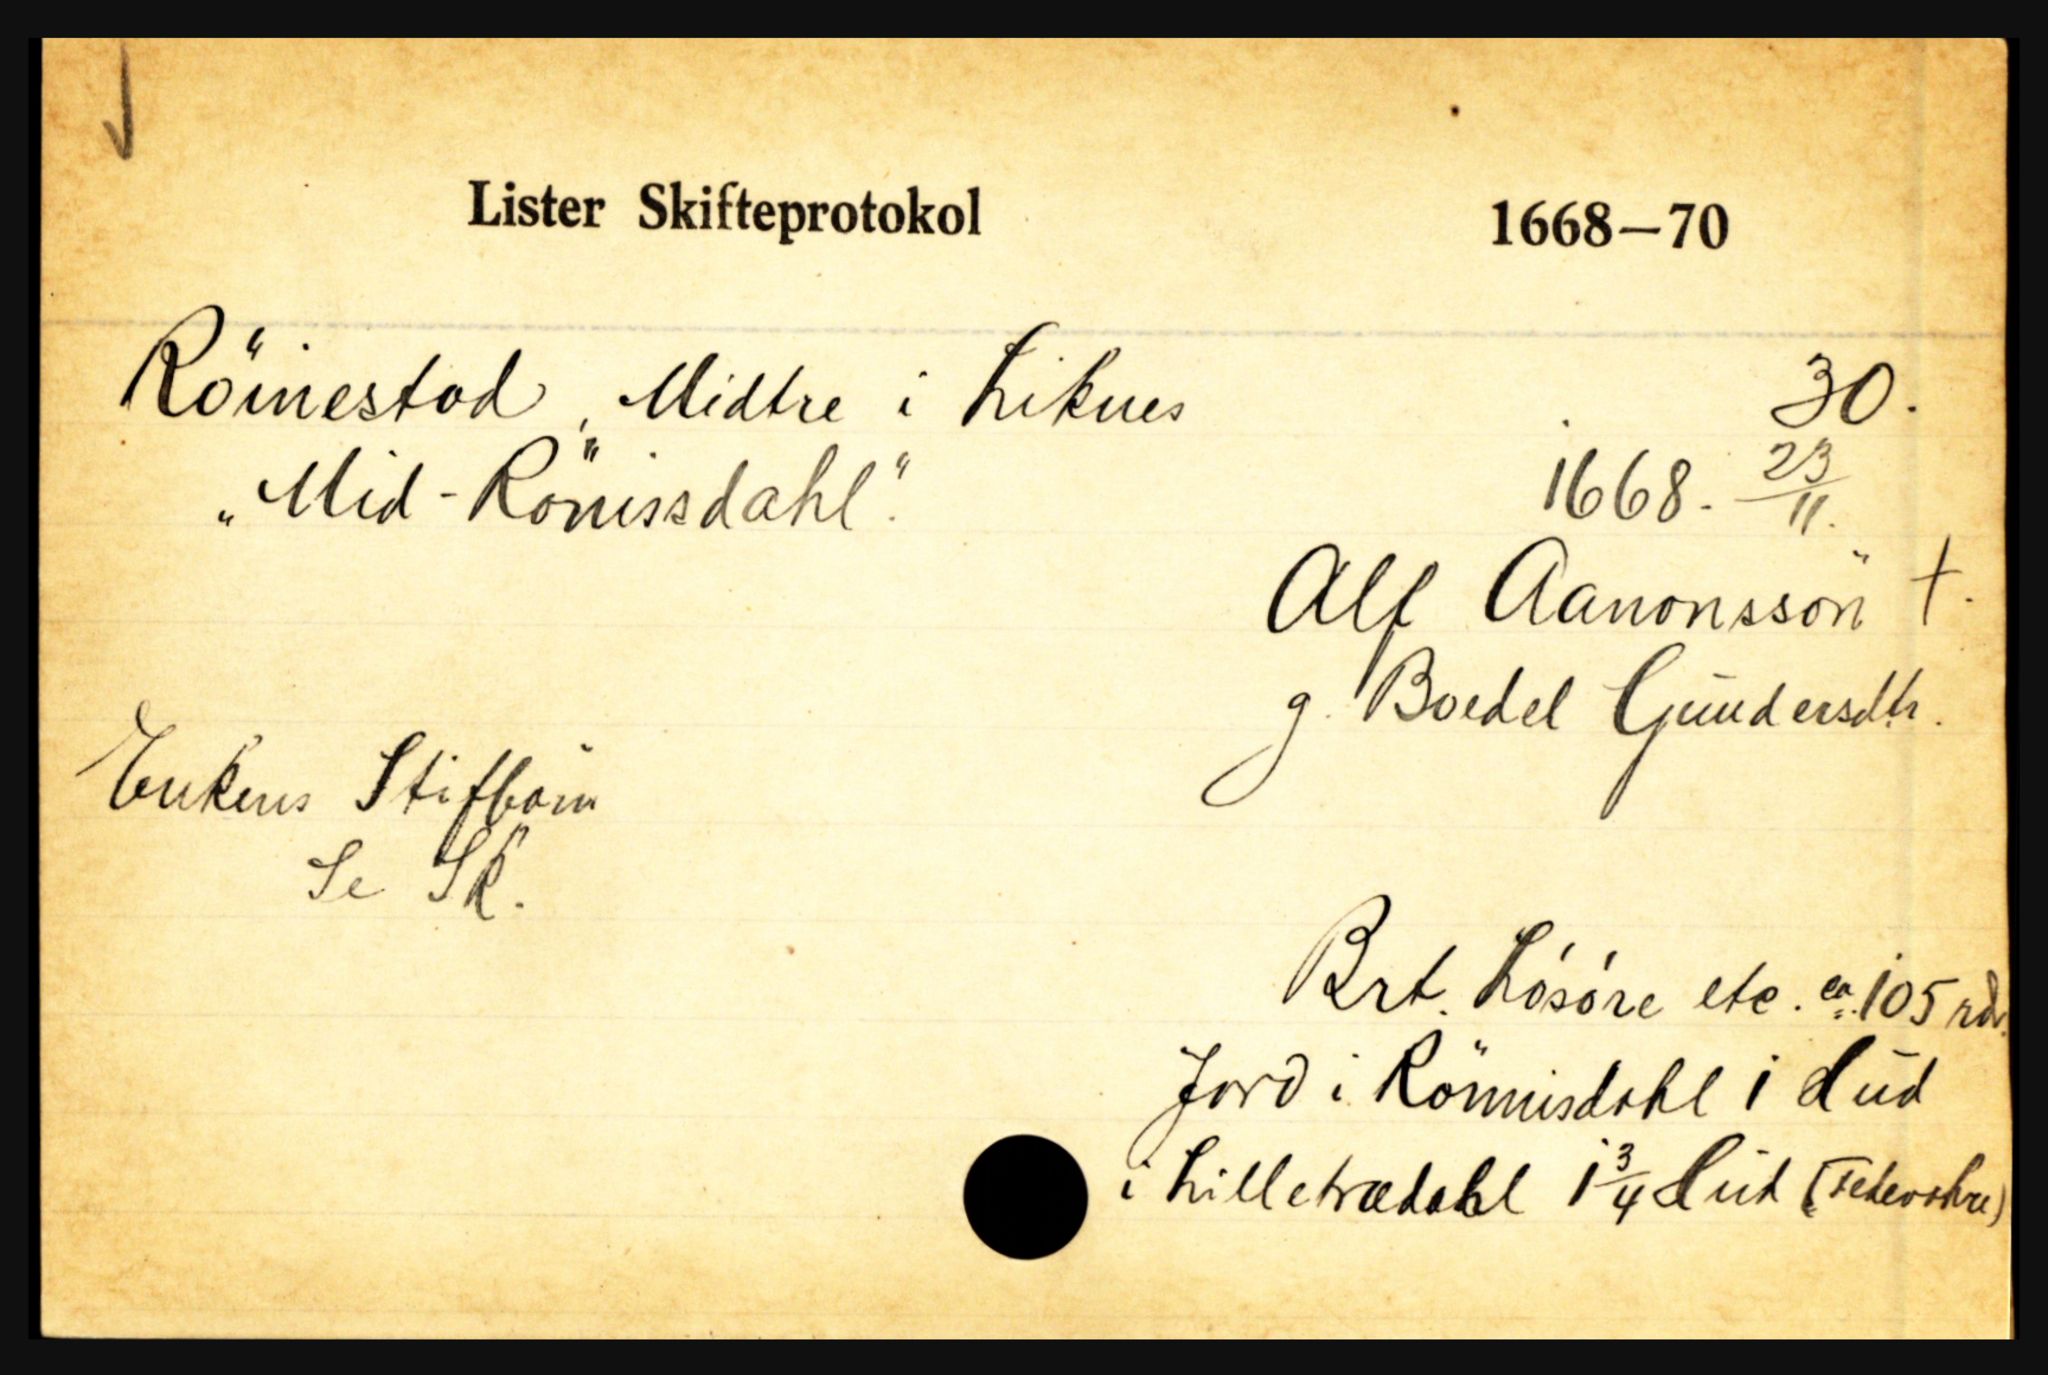 Lister Skifteprotokol 1668—70
Röinestad, Midtre i Liknes 30.
„Mid-Rönissdahl". 1668. 23/11.
Alf Aanonssön †.
g. Boedel Gŭndersdtr.
Enkens Stifbörn
Se Sk.
Brt. Lósóre etc. ca. 105 rdr.
Jord i Rönnisdahl 1 Hŭd
i Lilletrædahl 1 3/4 Hŭd